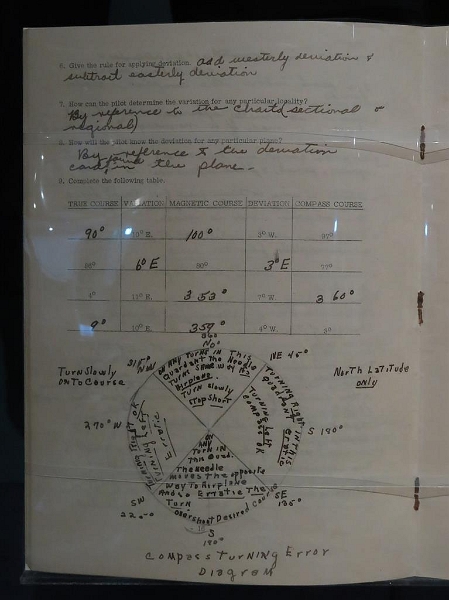 6. Give the rule for applying deviation. add westerly deviation &
subtract easterly deviation
7. How can the pilot determine the variation for any particular locality?
By reference to the chart (sectional or
regional)
8. How will the pilot know the deviation for any particular plane?
By reference to the deviation
card found in the plane.
9. Complete the following table.
TRUE COURSE VARIATION MAGNETIC COURSE DEVIATION COMPASS COURSE
90° E. 100° W.
86° 6° E 80° 3° E 77°
4° 11° E. 353° 7° W. 360°
9° 10° E. 359° 4° W. 3°
360
No°
315° NW
NE 45°
On Any Turns in This
Quadrant the Needle
Turns Same way As
Airplane.
Turn Slowly
Stop Short
Turn Slowly
On To Course
North Latitude
only
Turning Right in this
Quadrant Erratic
Turning Left
Compass OK
270° W
S 180°
Turning Right OK
Turning Left
Erratic
On
Any
Turn in
This Quad.
The Needle
moves the opposite
way to Airplane
And so Erratic The
Turn
overshoot Desired Course
SW
SE
135°
S
180°
Compass Turning Error
Diagram